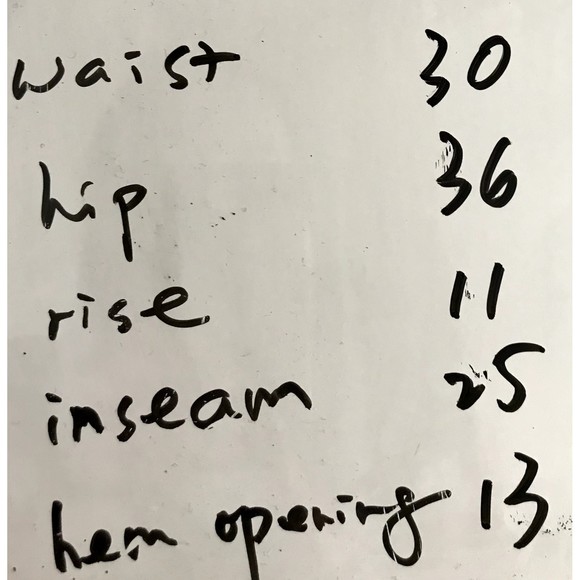 waist 30
hip 36
rise 11
inseam 25
hem opening 13